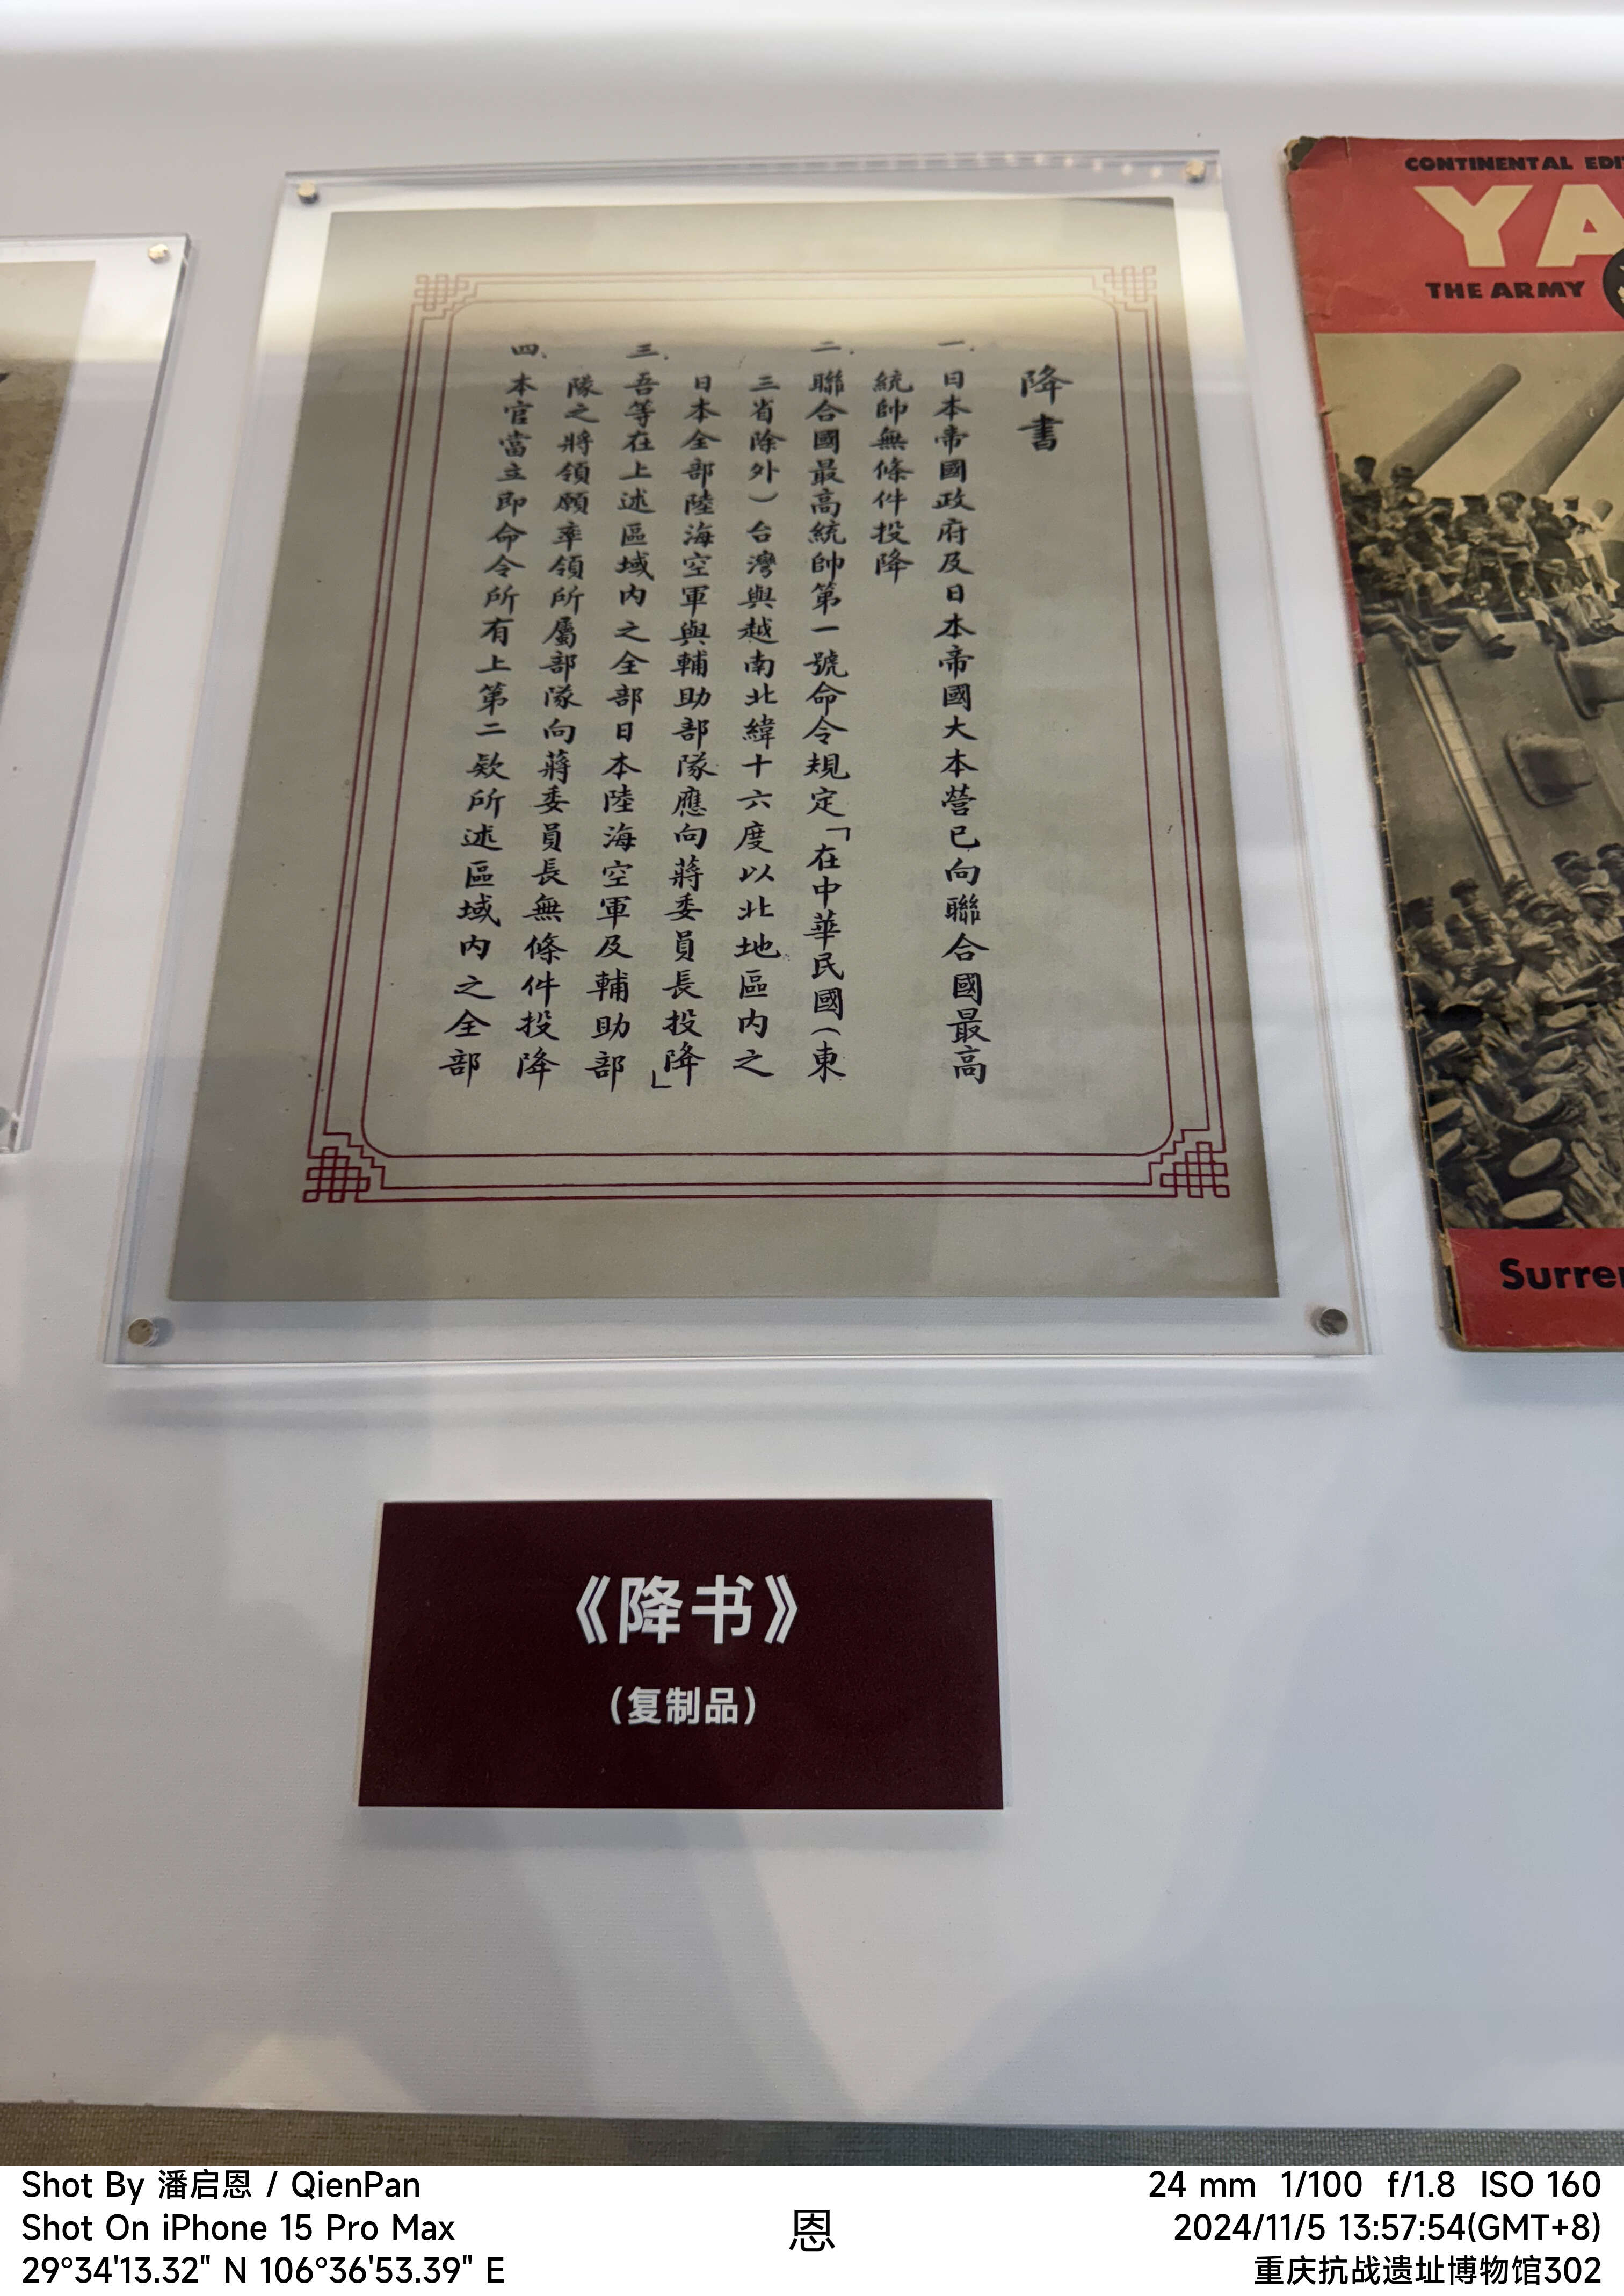 降書
一.日本帝國政府及日本帝國大本營已向聯合國最高
統帥無條件投降
二.聯合國最高統帥第一號命令規定「在中華民國(東
三省除外)台灣與越南北緯十六度以北地區內之
日本全部陸海空軍與輔助部隊應向蔣委員長投降」
三.吾等在上述區域內之全部日本陸海空軍及輔助部
隊之將領願率領所屬部隊向蔣委員長無條件投降
四.本官當立即命令所有上第二款所述區域內之全部
CONTINENTAL EDI
YA
THE ARMY
Surre
《降书》
(复制品)
Shot By 潘启恩 / QienPan
Shot On iPhone 15 Pro Max
29°34'13.32" N 106°36'53.39" E
恩
24 mm 1/100 f/1.8 ISO 160
2024/11/5 13:57:54(GMT+8)
重庆抗战遗址博物馆302